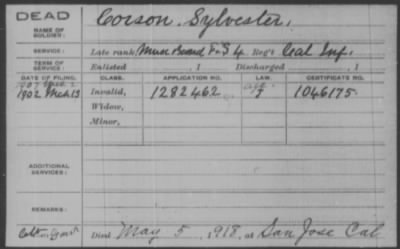 DEAD
NAME OF SOLDIER:
Corson, Sylvester,
SERVICE:
Late rank, Mem Band F&S 4 Reg't Cal Inf.
TERM OF SERVICE:
Enlisted , 1 Discharged , 1
DATE OF FILING. CLASS. APPLICATION NO. LAW. CERTIFICATE NO.
1907
1902 Mch 13 Invalid, 1282462 1046175.
Widow,
Minor,
ADDITIONAL SERVICES:
REMARKS:
Died May 5, 1918, at San Jose Cal